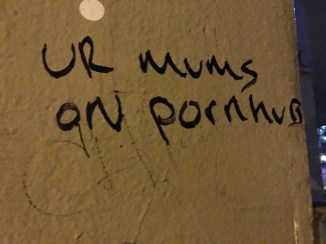 UR mums
ON pornhuB